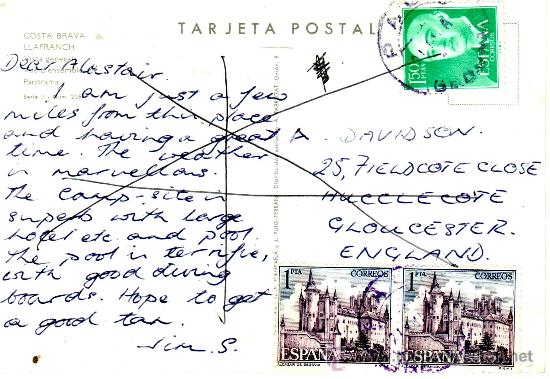 TARJETA POSTAL
COSTA BRAVA
LLAFRANCH
Panorama
Dear Alastair.
I am just a few
miles from this place
and having a great
time. The weather
in marvellous.
The camp-site in
superb with large
hotel etc. and pool.
The pool in terrific,
with good diving
boards. Hope to get
a good tan.
Jim S.
A. DAVIDSON.
25, FIELDCOTE CLOSE
HUCCLECOTE
GLOUCESTER.
ENGLAND.
1'50
PTAS
ESPAÑA
CORREOS
1
PTA
CORREOS
ESPAÑA
ALCAZAR DE SEGOVIA
1
PTA
CORREOS
ESPAÑA